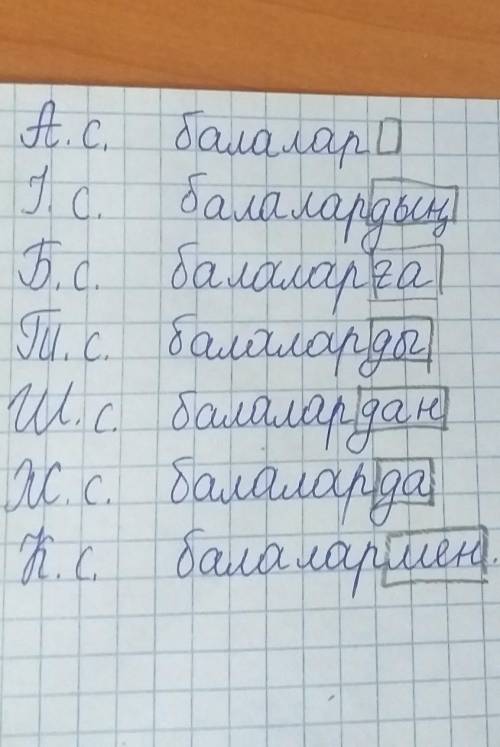 А.с. балалар
І.с. балалардың
Б.с. балаларға
Т.с. балаларды
Ш.с. балалардан
Ж.с. балаларда
К.с. балалармен.